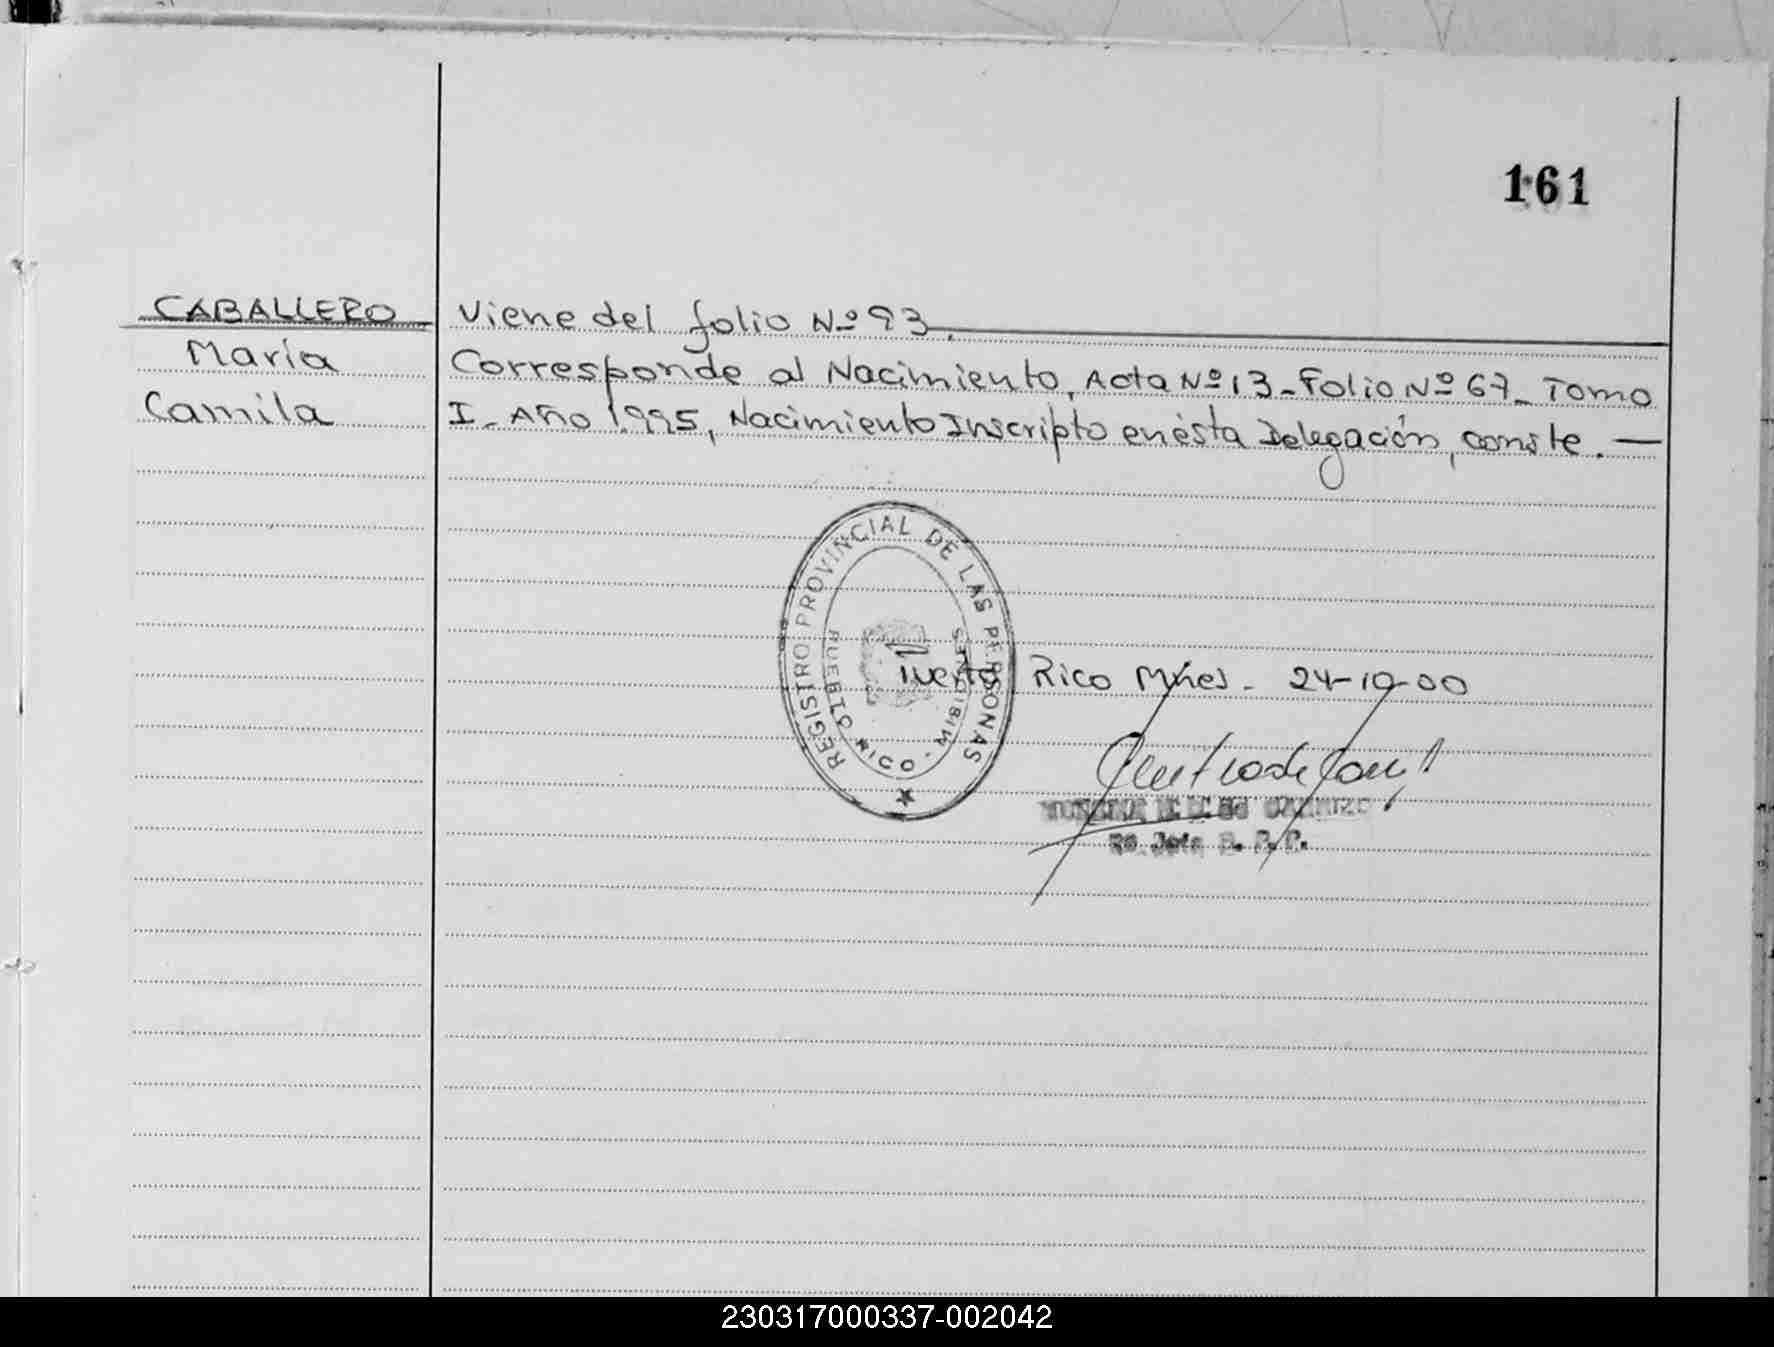 161
CABALLERO
María
Camila
Viene del folio Nº 93.
Corresponde al Nacimiento, Acta Nº 13 - Folio Nº 67 - Tomo
I - Año 1.995, Nacimiento Inscripto en ésta Delegación, conste. —
REGISTRO PROVINCIAL DE LAS PERSONAS
PUERTO RICO - MISIONES
Puerto Rico Mnes. - 24-10-00
R. P. P.
230317000337-002042